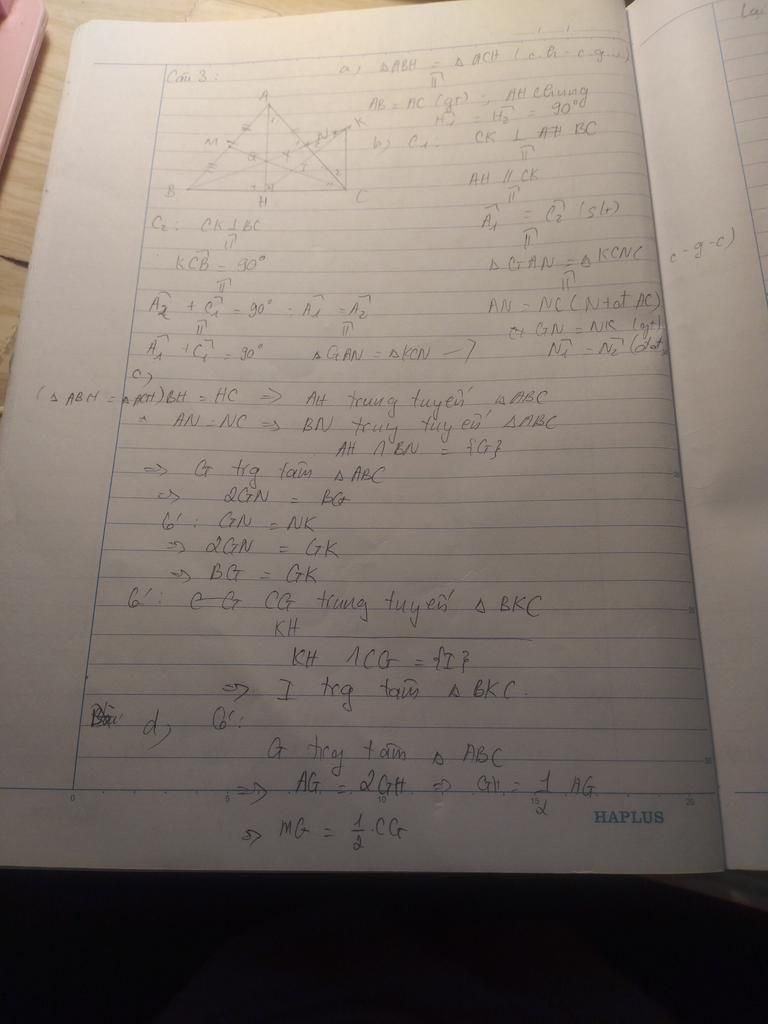 Câu 3:
a, △ABH = △ACH (c.h - c.g.v)
AB = AC (gt) ; AH chung
H₁ = H₂ = 90°
A
M
N
K
G
I
B
H
C
b, C₁: CK ⊥ BC
AH // CK
A₁ = C₂ (slt)
△GAN = △KCN (c-g-c)
AN = NC (N tđ AC)
GN = NK (gt)
N₁ = N₂ (đđ)
C₂: CK ⊥ BC
KCB = 90°
A₂ + C₁ = 90° ; A₁ = A₂
A₁ + C₁ = 90° △GAN = △KCN →
c,
(△ABH = △ACH) BH = HC => AH trung tuyến △ABC
AN = NC => BN truy tuyến △ABC
AH ∩ BN = {G}
=> G trg tâm △ABC
=> 2GN = BG
Có: GN = NK
=> 2GN = GK
=> BG = GK
Có: CG trung tuyến △BKC
KH
KH ∩ CG = {I}
=> I trg tâm △BKC.
d, Có:
G trg tâm △ABC
=> AG = 2GH => GH = 1/2 AG
=> MG = 1/2 . CG
0 5 10 15 20
HAPLUS
Lại